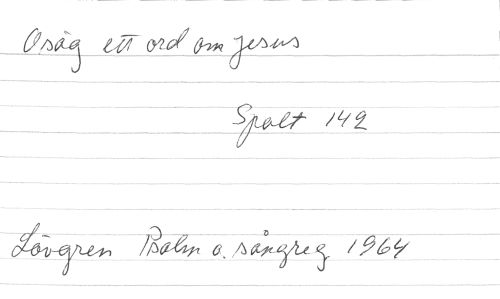 Osäg ett ord om Jesus
Spalt 142
Lövgren Psalm o. sångreg 1964